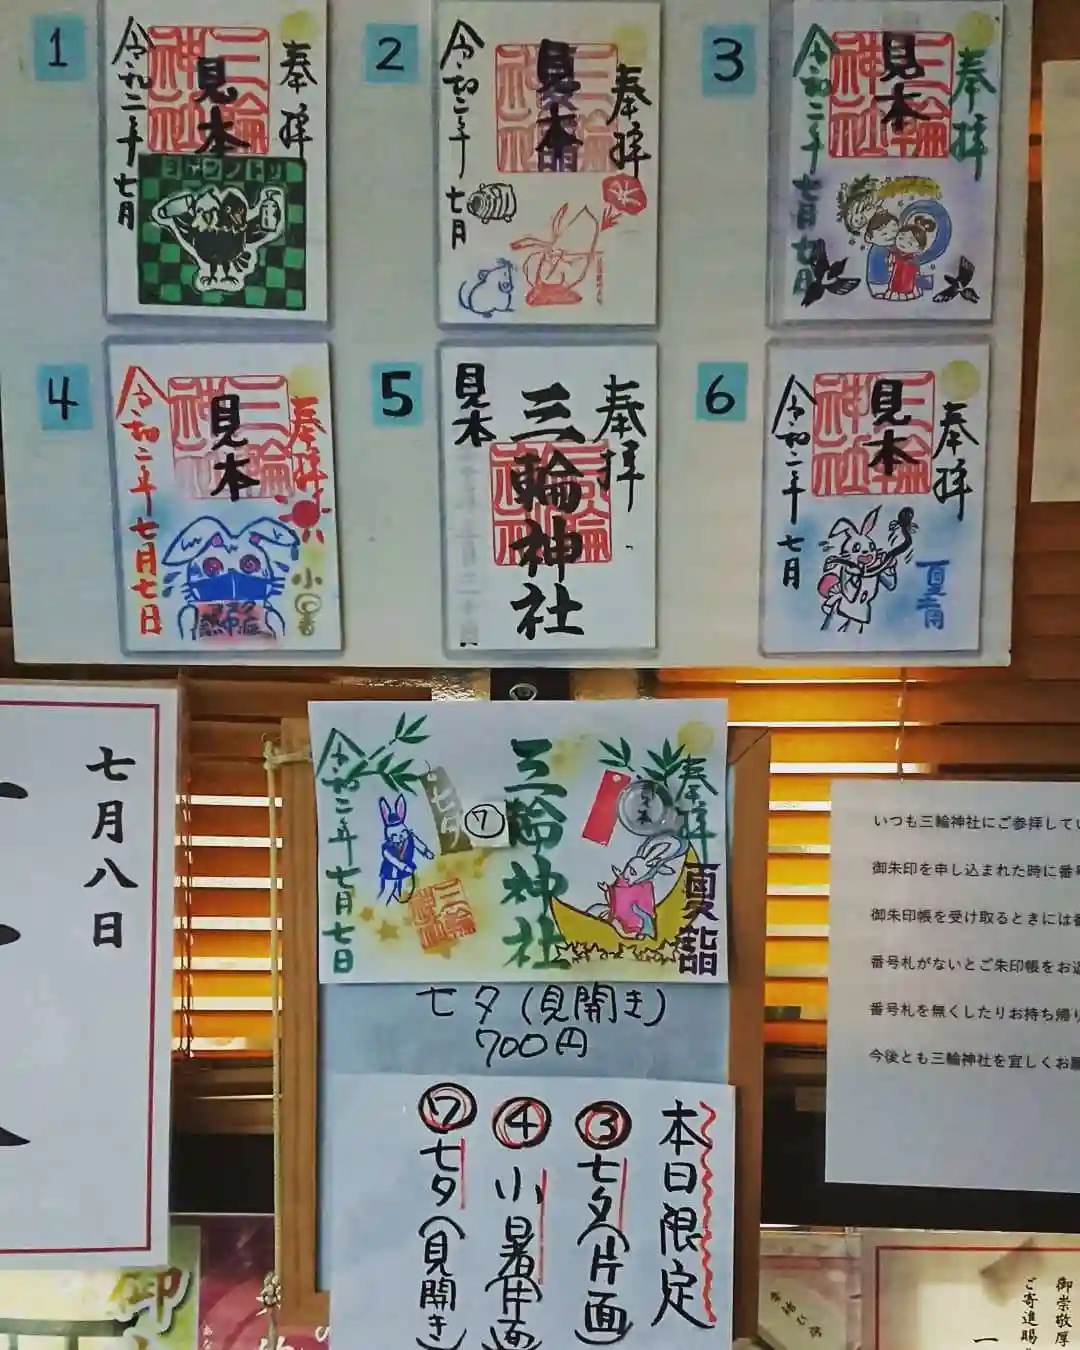 1
奉拝
三輪神社
見本
令和二年七月
ヨゲンノトリ
2
奉拝
三輪神社
見本
令和二年
七月
3
奉拝
三輪神社
見本
令和二年七月七日
4
奉拝
三輪神社
見本
令和二年七月七日
小暑
熱中症
5
奉拝
三輪神社
見本
6
奉拝
三輪神社
見本
令和二年七月
夏詣
奉拝
夏詣
見本
三輪神社
⑦
七夕
三輪神社
令和二年七月七日
七夕(見開き)
700円
本日限定
③七夕(片面)
④小暑(片面)
⑦七夕(見開き)
七月八日
いつも三輪神社にご参拝してい
御朱印を申し込まれた時に番号
御朱印帳を受け取るときには番
番号札がないとご朱印帳をお返
番号札を無くしたりお持ち帰り
今後とも三輪神社を宜しくお願
御崇敬厚
ご寄進賜
一
御